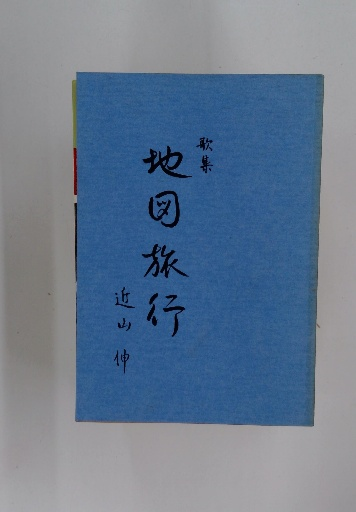 歌集
地図旅行
近山伸